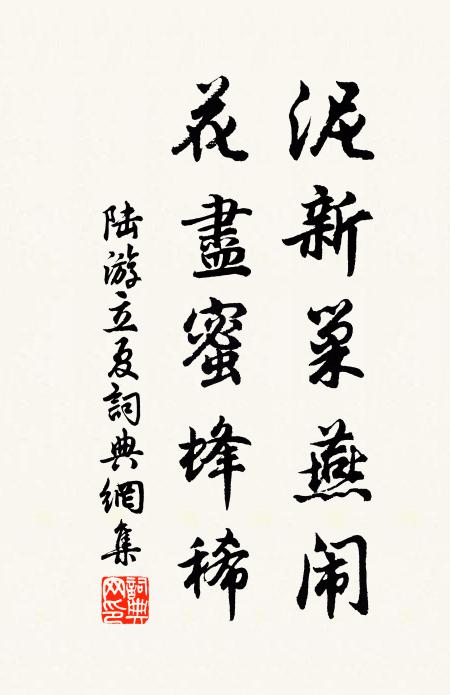 泥新巢燕闹
花盡蜜蜂稀
陆游立夏詞典網集
詞典網印